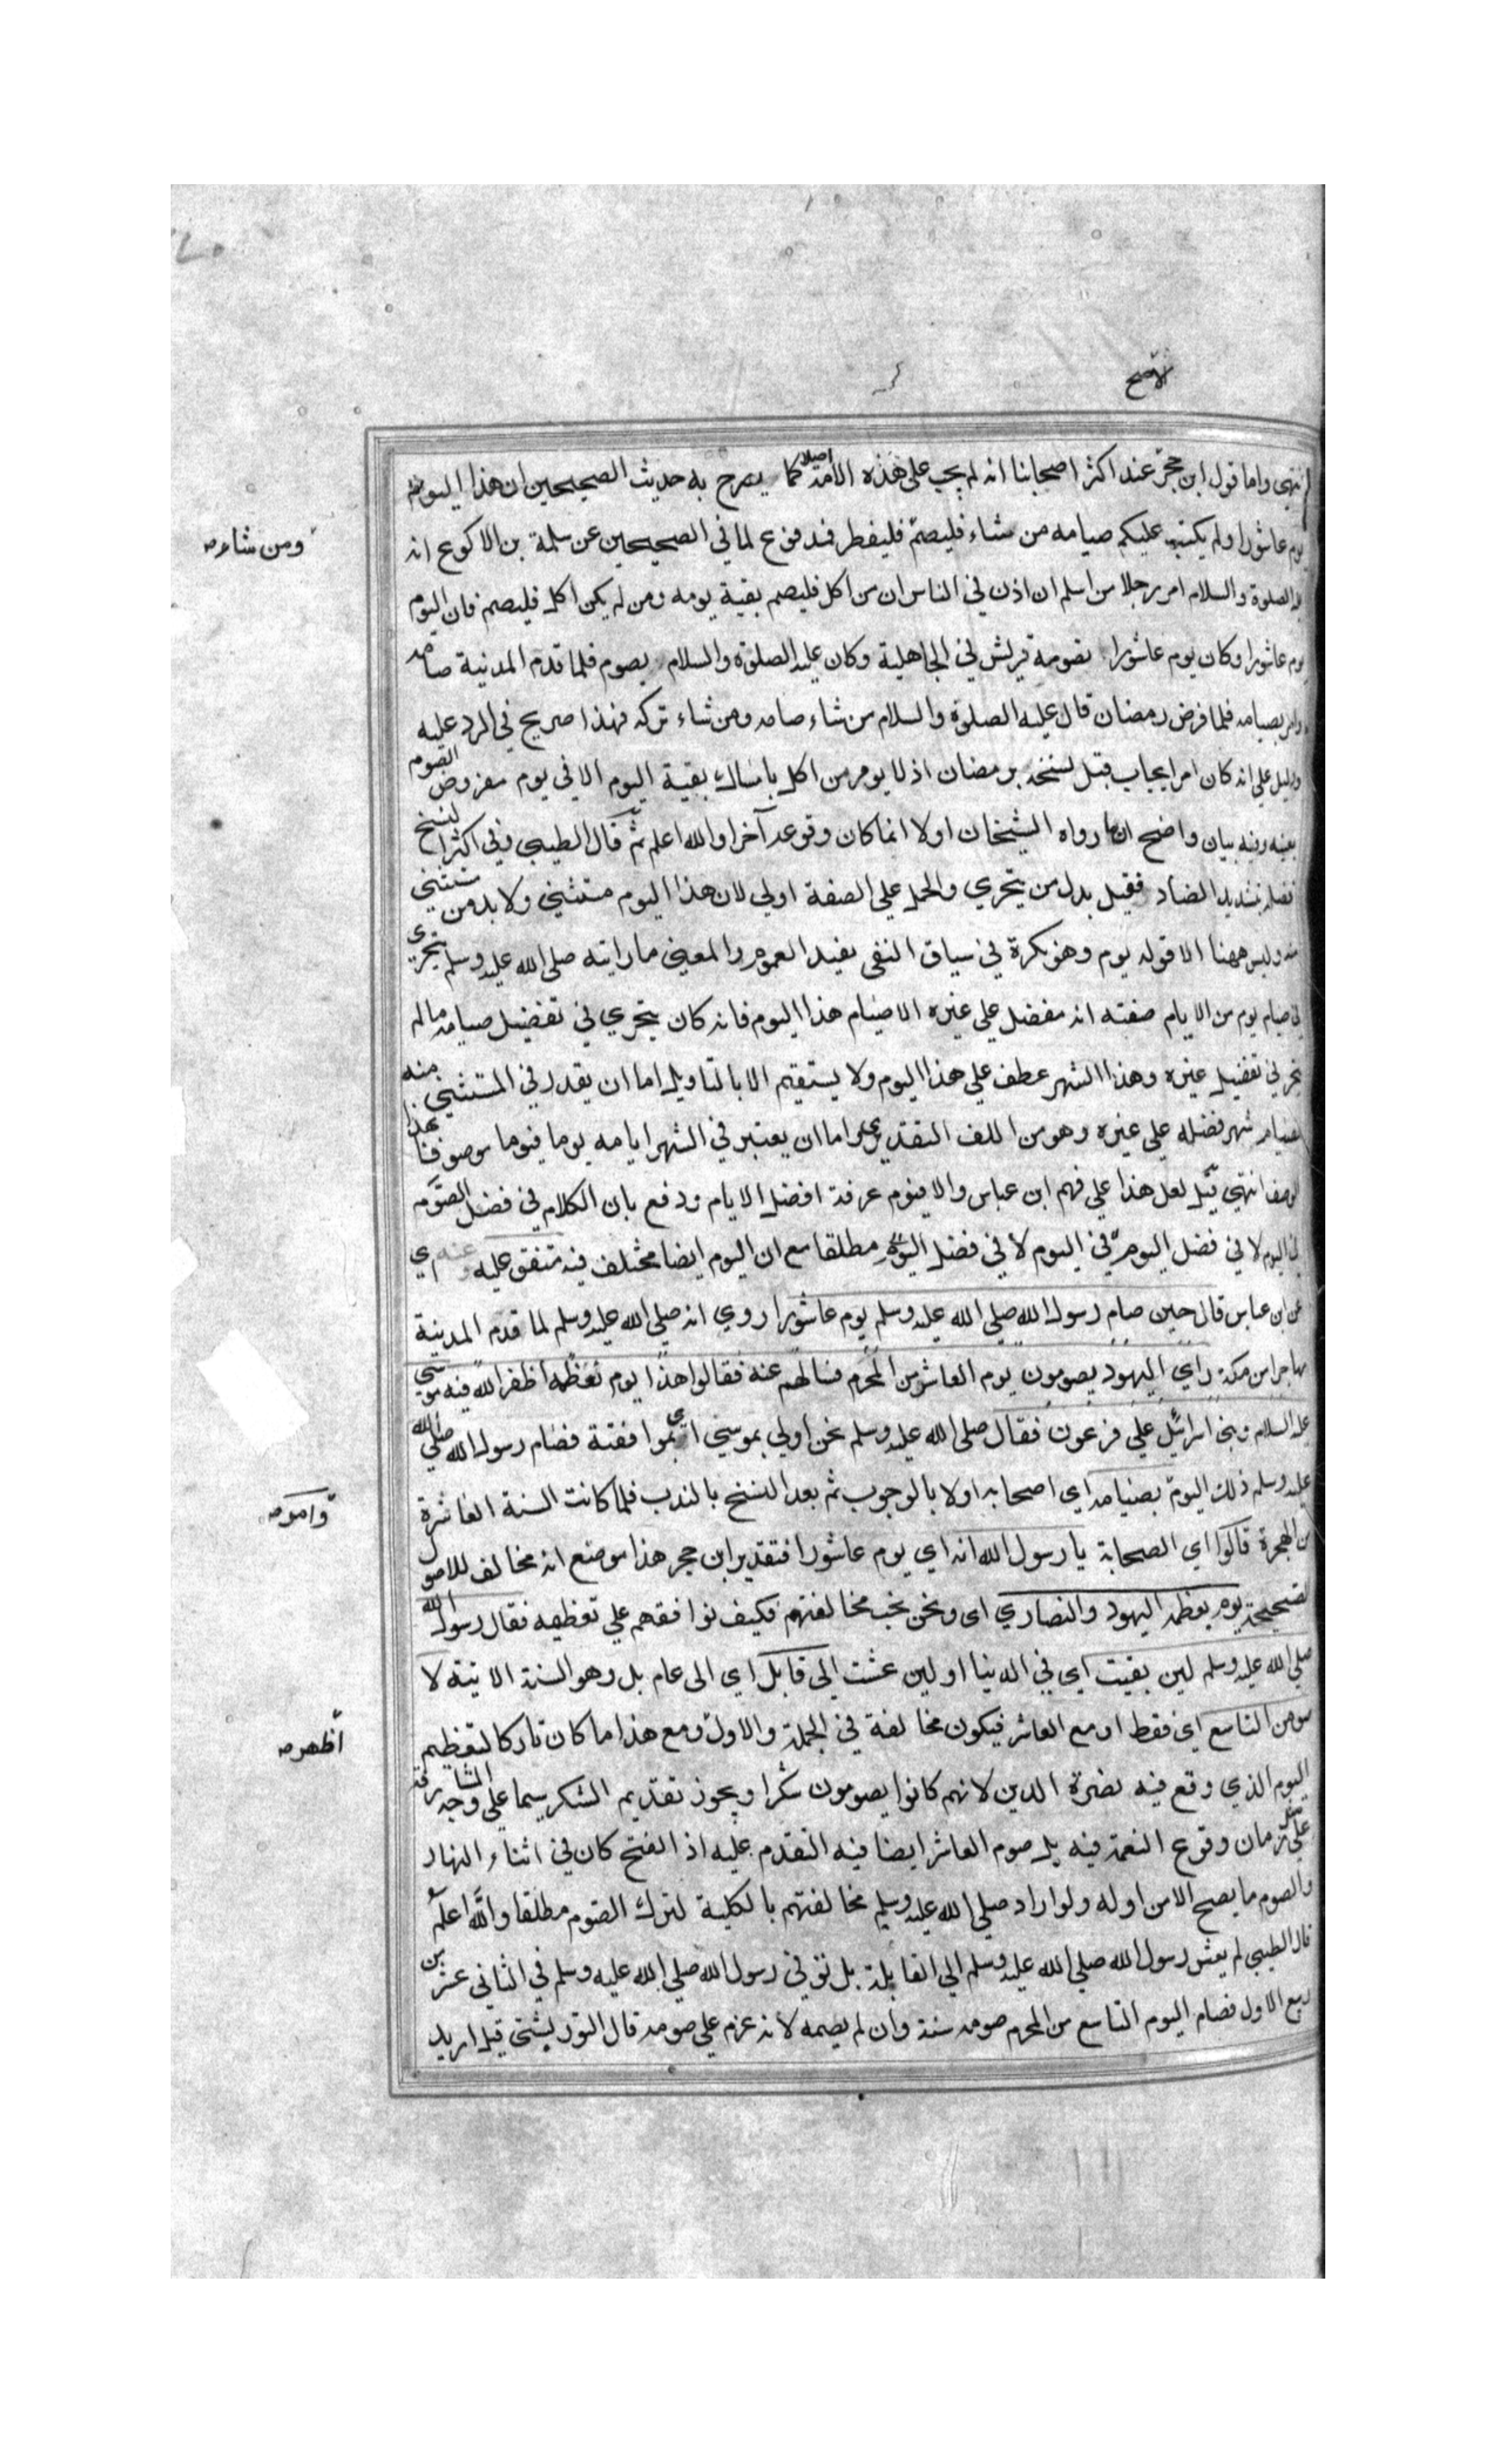 الاصح
انتهى واما قول ابن حجر عند اكثر اصحابنا انه لم يجب على هذه الامة اصلا كما يصرح به حديث الصحيحين ان هذا اليوم
يوم عاشورا ولم يكتب عليكم صيامه من شاء فليصم فليفطر فمدفوع لما في الصحيحين عن سلمة بن الاكوع انه
ومن شاء صح
عليه الصلوة والسلام امر رجلا من اسلم ان اذن في الناس ان من اكل فليصم بقية يومه ومن لم يكن اكل فليصم فان اليوم
يوم عاشورا وكان يوم عاشورا تصومه قريش في الجاهلية وكان عليه الصلوة والسلام يصوم فلما قدم المدينة صامه
وامر بصيامه فلما فرض رمضان قال عليه الصلوة والسلام من شاء صامه ومن شاء تركه فهذا صريح في الرد عليه
ودليل على انه كان امر ايجاب قبل نسخه برمضان اذ لا يومر من اكل بامساك بقية اليوم الا في يوم مفروض الصوم
بعينه وفيه بيان واضح ان ما رواه الشيخان اولا انما كان وقوعه آخرا والله اعلم ثم قال الطيبي وفي اكثر النسخ
فضله بتشديد الضاد فقيل بدل من يتحرى والحمل على الصفة اولى لان هذا اليوم مستثنى ولا بد من مستثنى
منه وليس ههنا الا قوله يوم وهو نكرة في سياق النفى يفيد العموم والمعنى ما رايته صلى الله عليه وسلم يتحرى
في صيام يوم من الايام صفته انه مفضل على غيره الا صيام هذا اليوم فانه كان يتحرى في تفضيل صيامه ما لم
يتحر في تفضيل غيره وهذا الشهر عطف على هذا اليوم ولا يستقيم الا بالتاويل اما ان يقدر في المستثنى منه
صيام شهر فضله على غيره وهو من اللف التقديرى واما ان يعتبر في الشهر ايامه يوما فيوما موصوفا بهذا
الوصف انتهى قيل لعل هذا على فهم ابن عباس والا فيوم عرفة افضل الايام ودفع بان الكلام في فضل الصوم
في اليوم لا في فضل اليوم في اليوم لا في فضل اليوم مطلقا مع ان اليوم ايضا مختلف فيه متفق عليه وعنه اي
عن ابن عباس قال حين صام رسول الله صلى الله عليه وسلم يوم عاشورا روي انه صلى الله عليه وسلم لما قدم المدينة
مهاجرا من مكة راى اليهود يصومون يوم العاشر من المحرم فسالهم عنه فقالوا هذا يوم نعظمه اظفر الله فيه موسى
عليه السلام وبني اسرائيل على فرعون فقال صلى الله عليه وسلم نحن اولى بموسى اي بموافقته فصام رسول الله صلى الله
عليه وسلم ذلك اليوم بصيامه اي اصحابه اولا بالوجوب ثم بعد النسخ بالندب فلما كانت السنة العاشرة
وامر صح
من الهجرة قالوا اي الصحابة يا رسول الله انه اي يوم عاشورا فتقدير ابن حجر هذا موضع انه مخالف للاصول
الصحيحة يوم يعظمه اليهود والنصارى اى ونحن نحب مخالفتهم فكيف نوافقهم على تعظيمه فقال رسول الله
صلى الله عليه وسلم لين بقيت اي في الدنيا او لين عشت الى قابل اي الى عام بل وهو السنة الاتية لا
صومن التاسع اي فقط او مع العاشر فيكون مخالفة في الجملة والاول ومع هذا ما كان تاركا لتعظيم
اظهر صح
اليوم الذي وقع فيه نصرة الدين لانهم كانوا يصومون شكرا ويجوز تقديم الشكر سيما على وجه المشارفة
على زمان وقوع النعمة فيه بل صوم العاشر ايضا فيه التقدم عليه اذ الفتح كان في اثناء النهار
والصوم ما يصح الا من اوله ولو اراد صلى الله عليه وسلم مخالفتهم بالكلية لترك الصوم مطلقا والله اعلم
قال الطيبي لم يعش رسول الله صلى الله عليه وسلم الى القابلة بل توفي رسول الله صلى الله عليه وسلم في الثاني عشر من
ربيع الاول فصام اليوم التاسع من المحرم صومه سنة وان لم يصمه لانه عزم على صومه قال التوربشتى قيل اريد